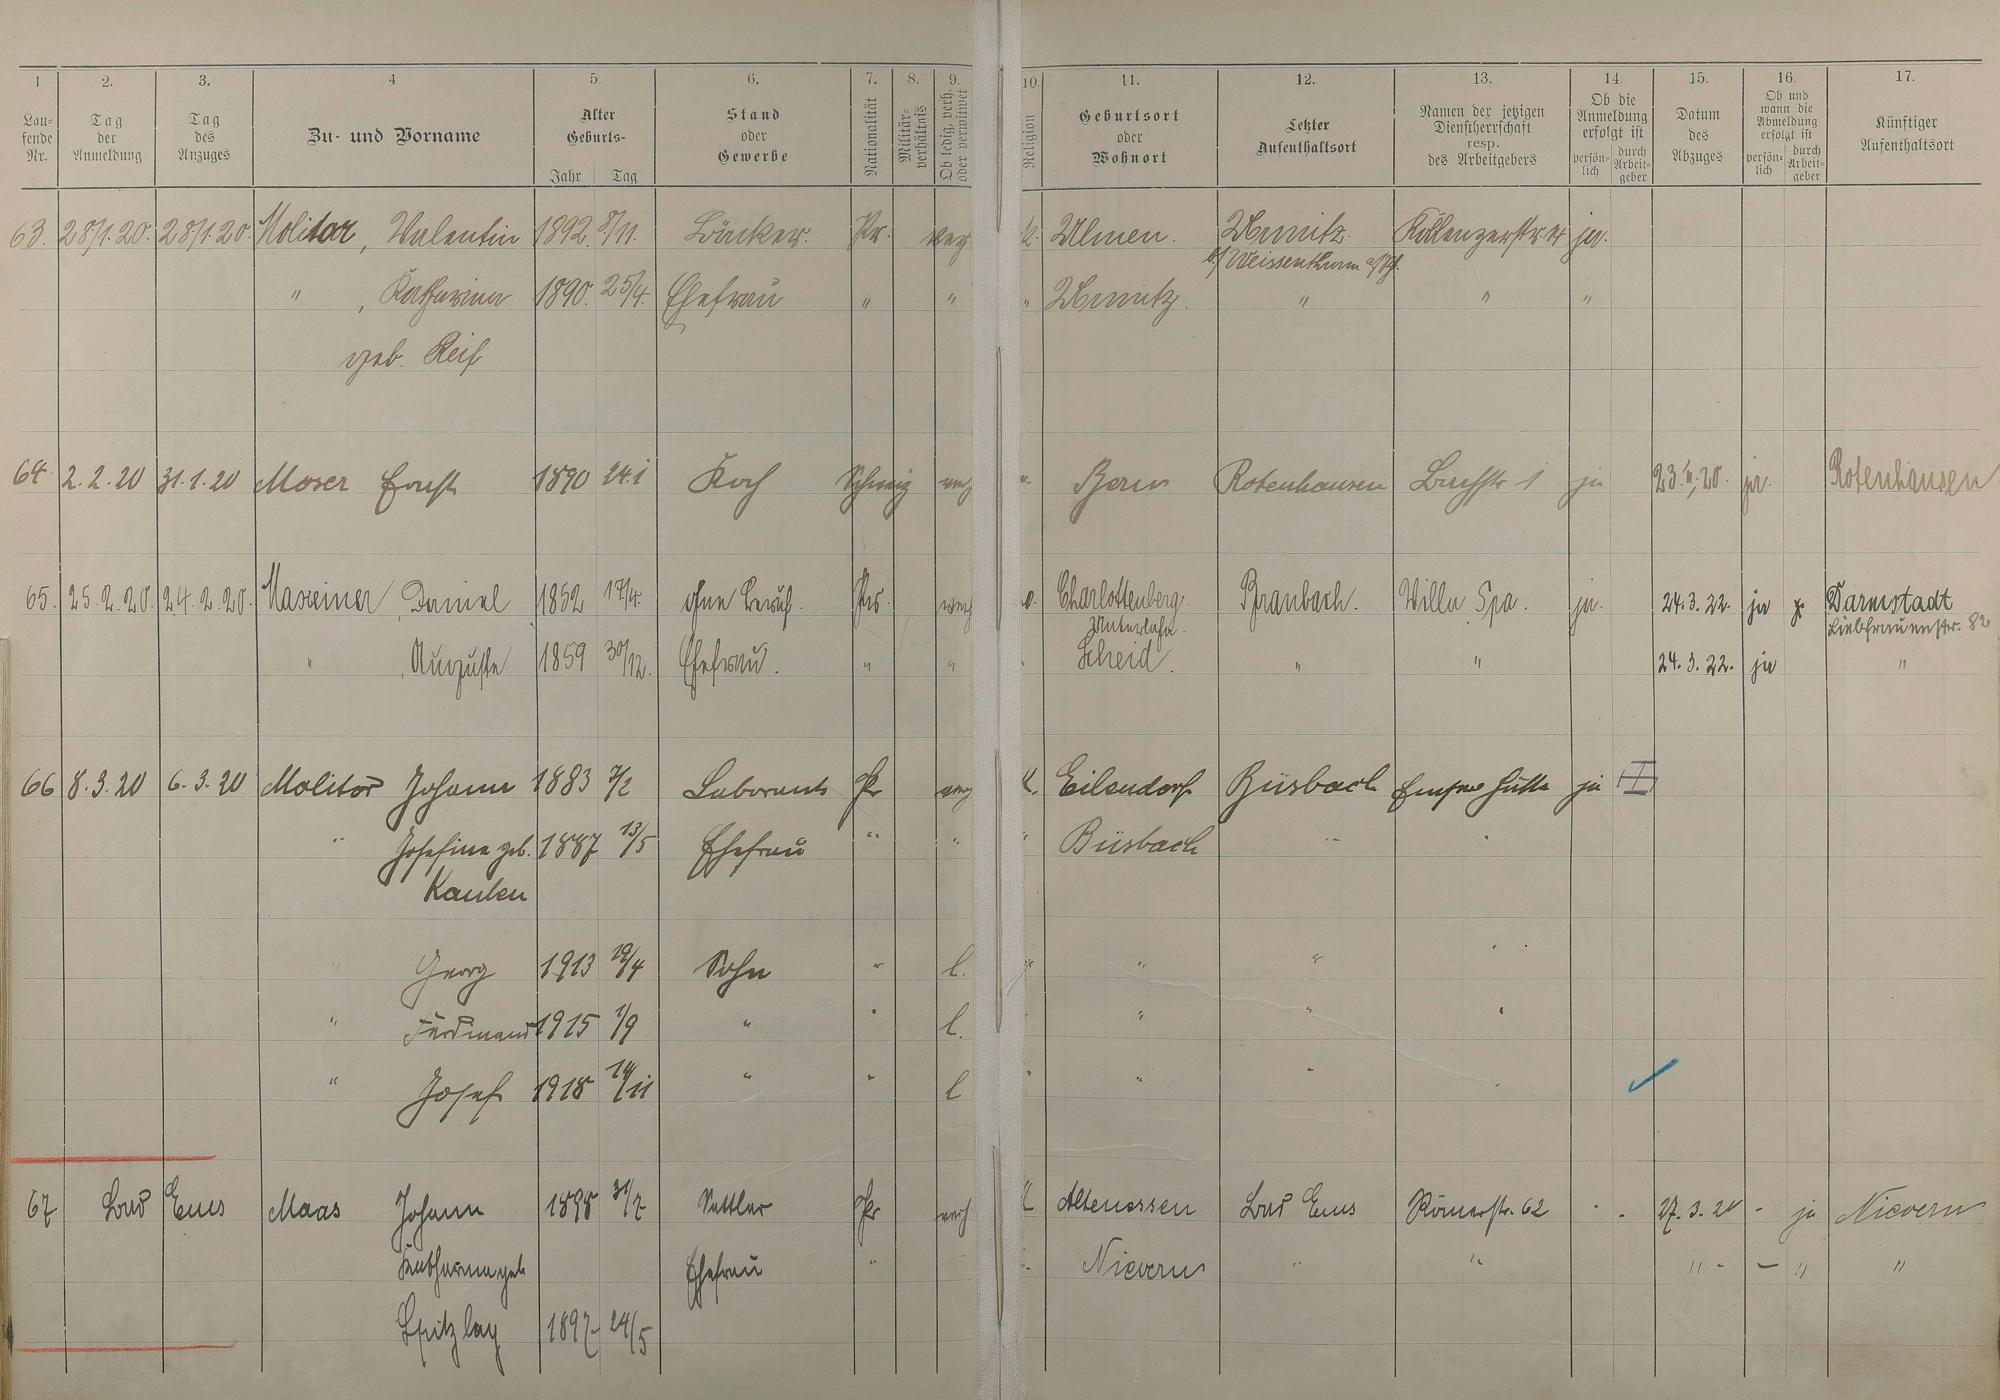 1 2. 3. 4 5. 6. 7. 8. 9. 10. 11. 12. 13. 14. 15. 16. 17.
Lau-
fende
Nr.
Tag
der
Anmeldung
Tag
des
Anzuges
Zu- und Vorname
Alter
Geburts-
Jahr Tag
Stand
oder
Gewerbe
Nationalität
Militär-
verhältnis
Ob ledig, verh.
oder verwitwet
Religion
Geburtsort
oder
Wohnort
Letzter
Aufenthaltsort
Namen der jetzigen
Dienstherrschaft
resp.
des Arbeitgebers
Ob die
Anmeldung
erfolgt ist
persön-
lich
durch
Arbeit-
geber
Datum
des
Abzuges
Ob und
wann die
Abmeldung
erfolgt ist
persön-
lich
durch
Arbeit-
geber
Künftiger
Aufenthaltsort
63. 28/1.20. 28/1.20. Molitor, Valentin 1892. 8/11. Bäcker. Pr. k. Ulmen. Urmitz. ja.
b/ Weissenthurm a/Rh.
" , Katharina 1890. 25/4. Ehefrau " " " Urmitz. " " "
geb. Reif
64 2.2.20 31.1.20 Moser Ernst 1890 24.1 Koch Schweiz verh Bern Rotenhausen ja 23. 20. ja. Rotenhausen
65. 25.2.20. 24.2.20. Daniel 1852 17/4. ohne Beruf. Prs. verh Charlottenberg. Braubach. Villa Spa. ja. 24.3.22. ja Darmstadt
Unterlahn. Liebfrauenstr. 82
" , Auguste 1859 30/12. Ehefrau. " " Scheid. " " 24.3.22. ja "
66 8.3.20 6.3.20 Molitor Johann 1883 7/2 Laborant Pr verh K. Eilendorf Büsbach Emser Hütte ja I
" Josefine geb. 1887 13/5 Ehefrau " " " Büsbach " "
Kaulen
" Georg 1913 19/4 Sohn " l. " " " "
" Ferdinand 1915 1/9 " " l. " " "
" Josef 1918 14/11 " " l " " " "
67 Bad Ems Maas Johann 1898 31/7 Sattler Pr verh K Altenessen Bad Ems Römerstr. 62 - - 27.3.20 - ja Nievern
Katharina geb Ehefrau " " Nievern " " " - - " "
Spitzlay 1897 24/5